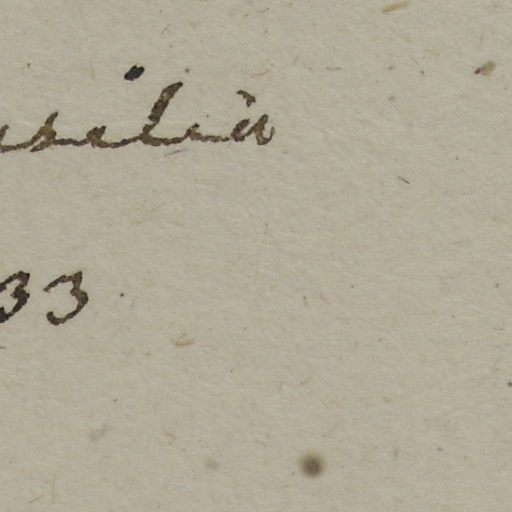 usilia
33